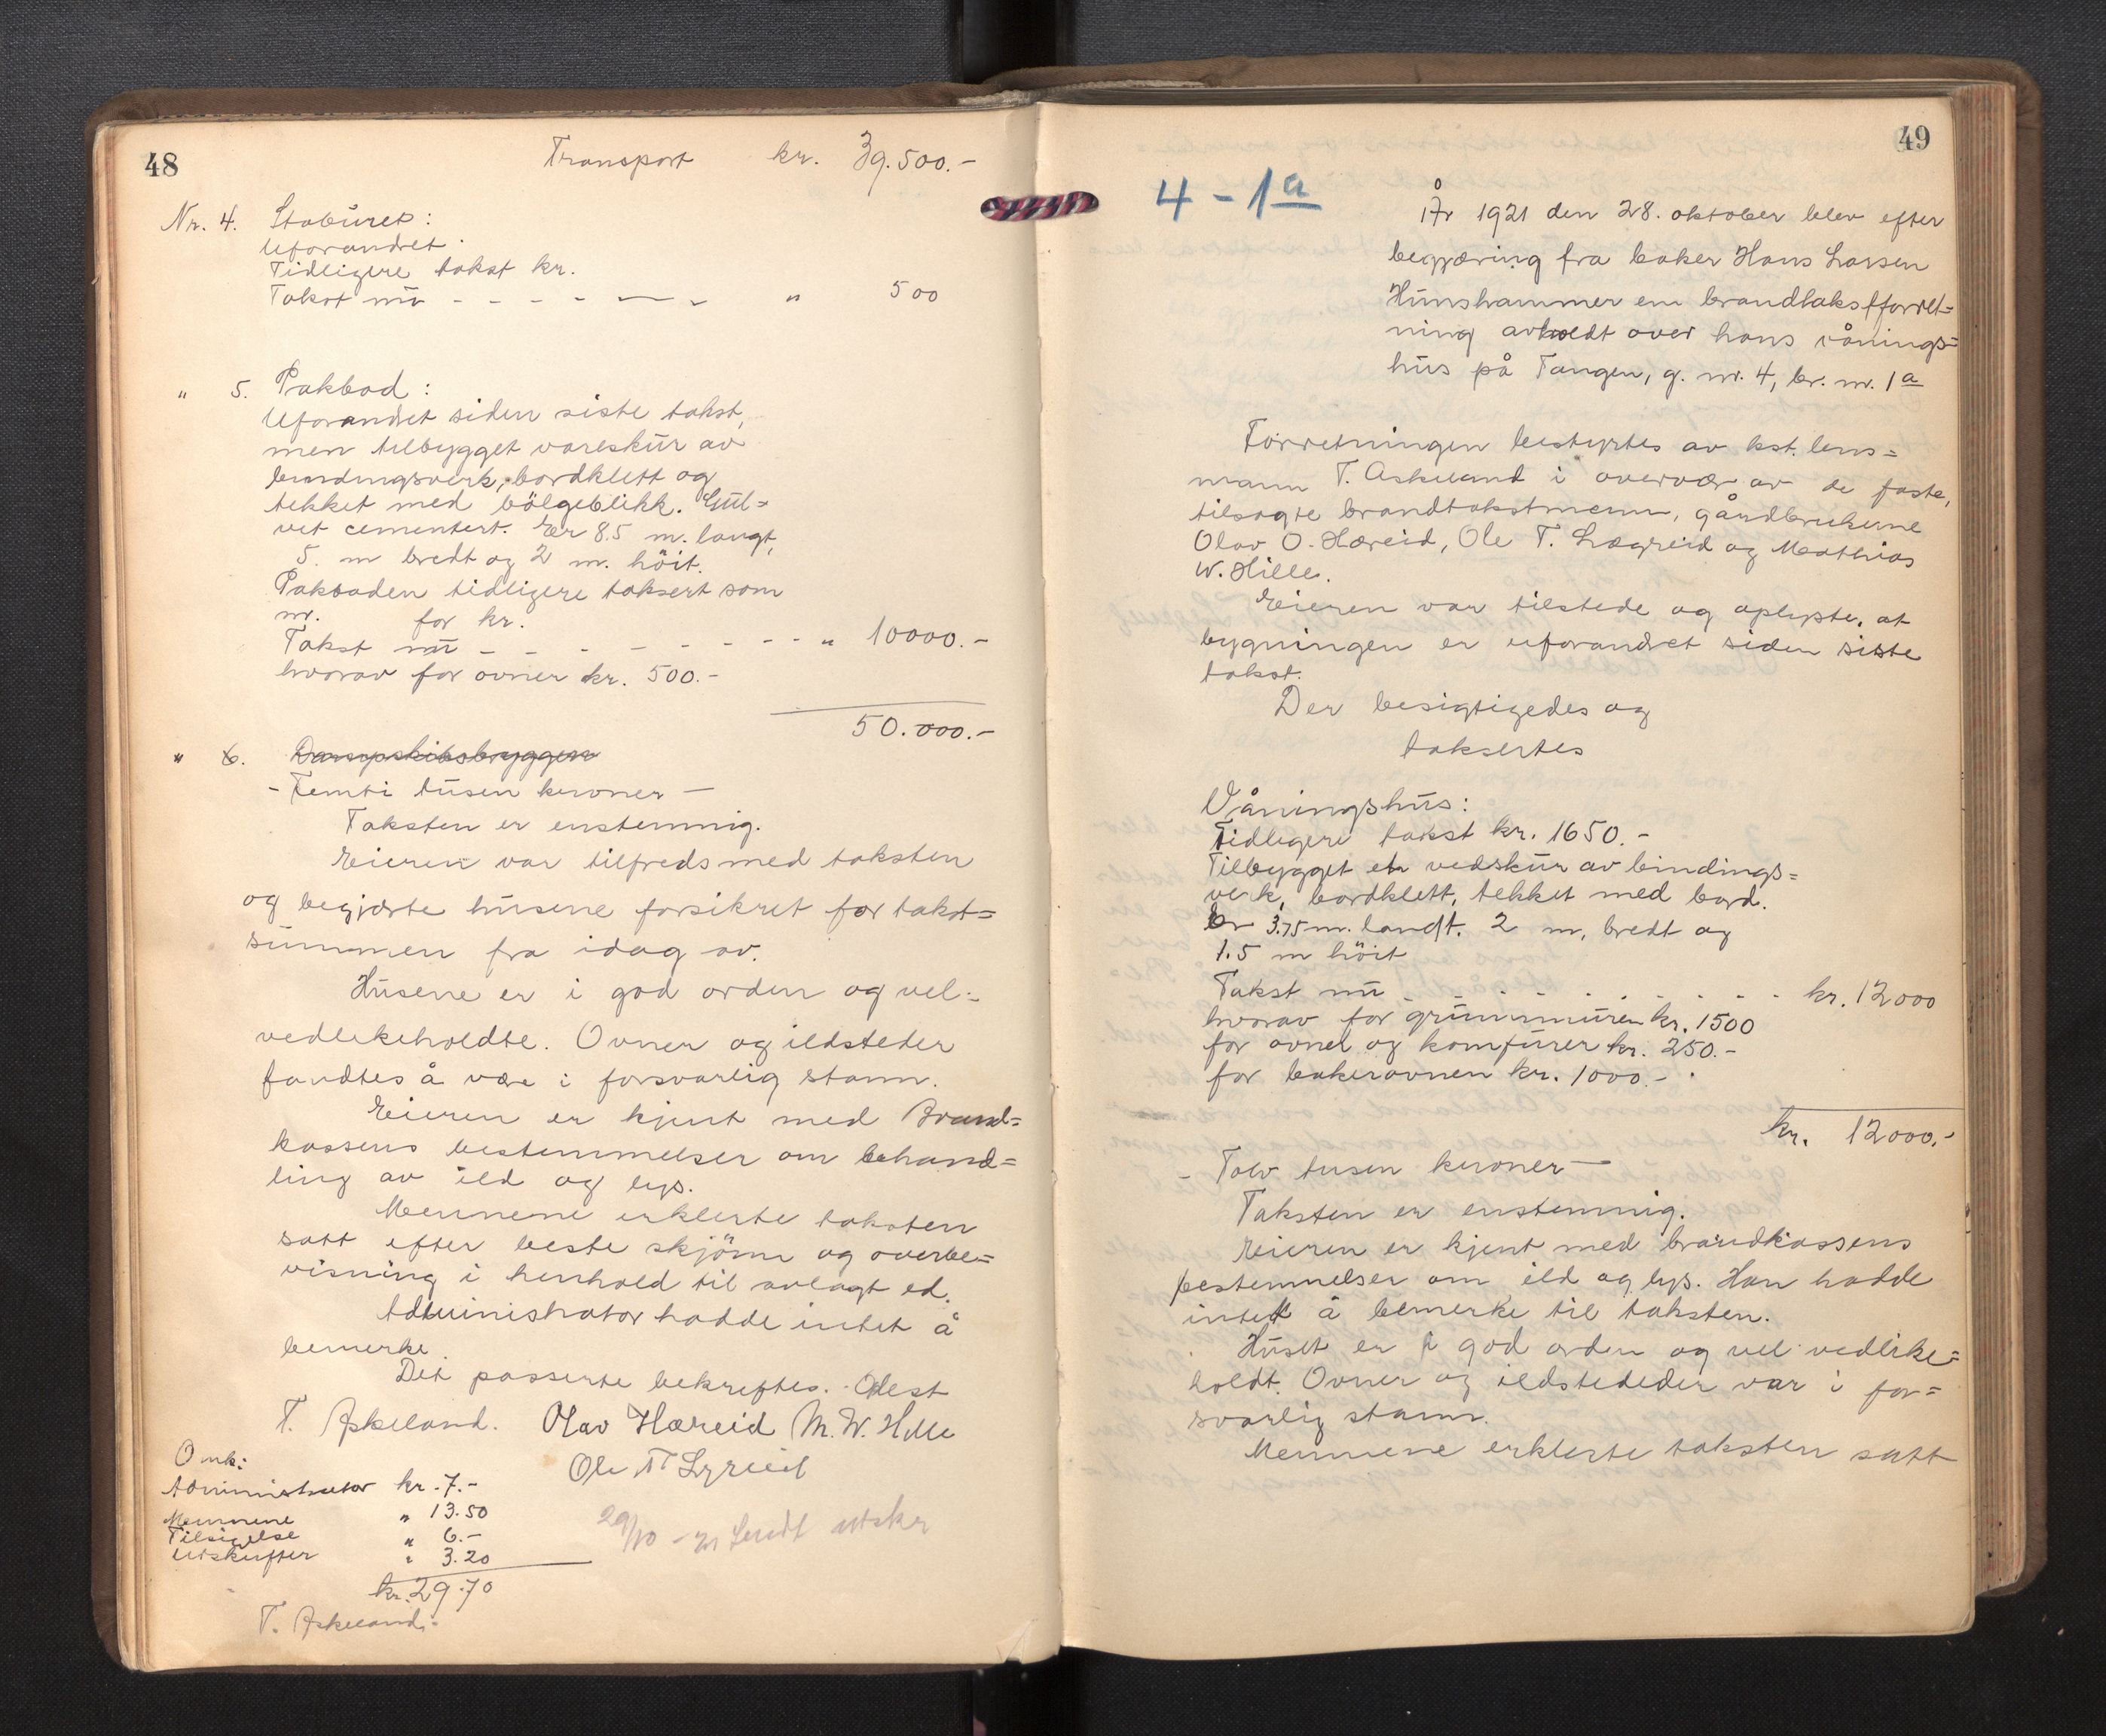 48
Transport kr. 39.500.-
Nr. 4. Staburet:
Uforandret.
Tidligere takst kr.
Takst nu - - - - — - " 500
" 5. Pakbod:
Uforandret siden siste takst,
men tilbygget vareskur av
bindingsverk, bordklett og
tekket med bölgeblikk. Gul=
vet cementert. Er 8.5 m. langt,
5. m bredt og 2 m. höit.
Pakboden tidligere taksert som
nr. for kr.
Takst nu - - - - - - - - " 10000.-
hvorav for ovner kr. 500.-
50.000.-
" 6. Dampskibsbryggen
- Femti tusen kroner -
Taksten er enstemmig.
Eieren var tilfreds med taksten
og begjærte husene forsikret for takst=
summen fra idag av.
Husene er i god orden og vel=
vedlikeholdte. Ovner og ildsteder
fandtes å være i forsvarlig stann.
Eieren er kjent med Brand=
kassens bestemmelser om behand=
ling av ild og lys.
Mennene erklerte taksten
satt efter beste skjönn og overbe=
visning i henhold til avlagt ed.
Administrator hadde intet å
bemerke.
Det passerte bekreftes.
T. Askeland. Olav Hæreid M. W. Hille
Ole T Lægreid
Omk:
Administrator kr. 7.-
Mennene " 13.50
Tilsigelse " 6.-
Utskrifter " 3.20
kr. 29.70
T. Askeland.
29/10 - 21 Sendt utskr
49
4 - 1a
År 1921 den 28. oktober blev efter
begjæring fra baker Hans Larsen
Hunshammer en brandtakstforret=
ning avholdt over hans vånings=
hus på Tangen, g. nr. 4, br. nr. 1a
Forretningen bestyrtes av kst. lens=
mann T. Askeland i overvær av de faste,
tilsagte brandtakstmenn, gårdbrukerne
Olav O. Hæreid, Ole T. Lægreid og Mathias
W. Hille.
Eieren var tilstede og oplyste, at
bygningen er uforandret siden siste
takst.
Der besigtigedes og
taksertes
Våningshus:
Tidligere takst kr. 1650.-
Tilbygget et vedskur av bindings=
verk, bordklett, tekket med bord.
Er 3.75 m. langt. 2 m. bredt og
1.5 m höit
Takst nu - - - - - - - - - kr. 12000
hvorav for grunnmuren kr. 1500
for ovner og komfurer kr. 250.-
for bakerovnen kr. 1000.-
kr. 12000.-
- Tolv tusen kroner —
Taksten er enstemmig.
Eieren er kjent med brandkassens
bestemmelser om ild og lys. Han hadde
intet å bemerke til taksten.
Huset er i god orden og vel vedlike=
holdt. Ovner og ildstededer var i for=
svarlig stann.
Mennene erklerte taksten satt